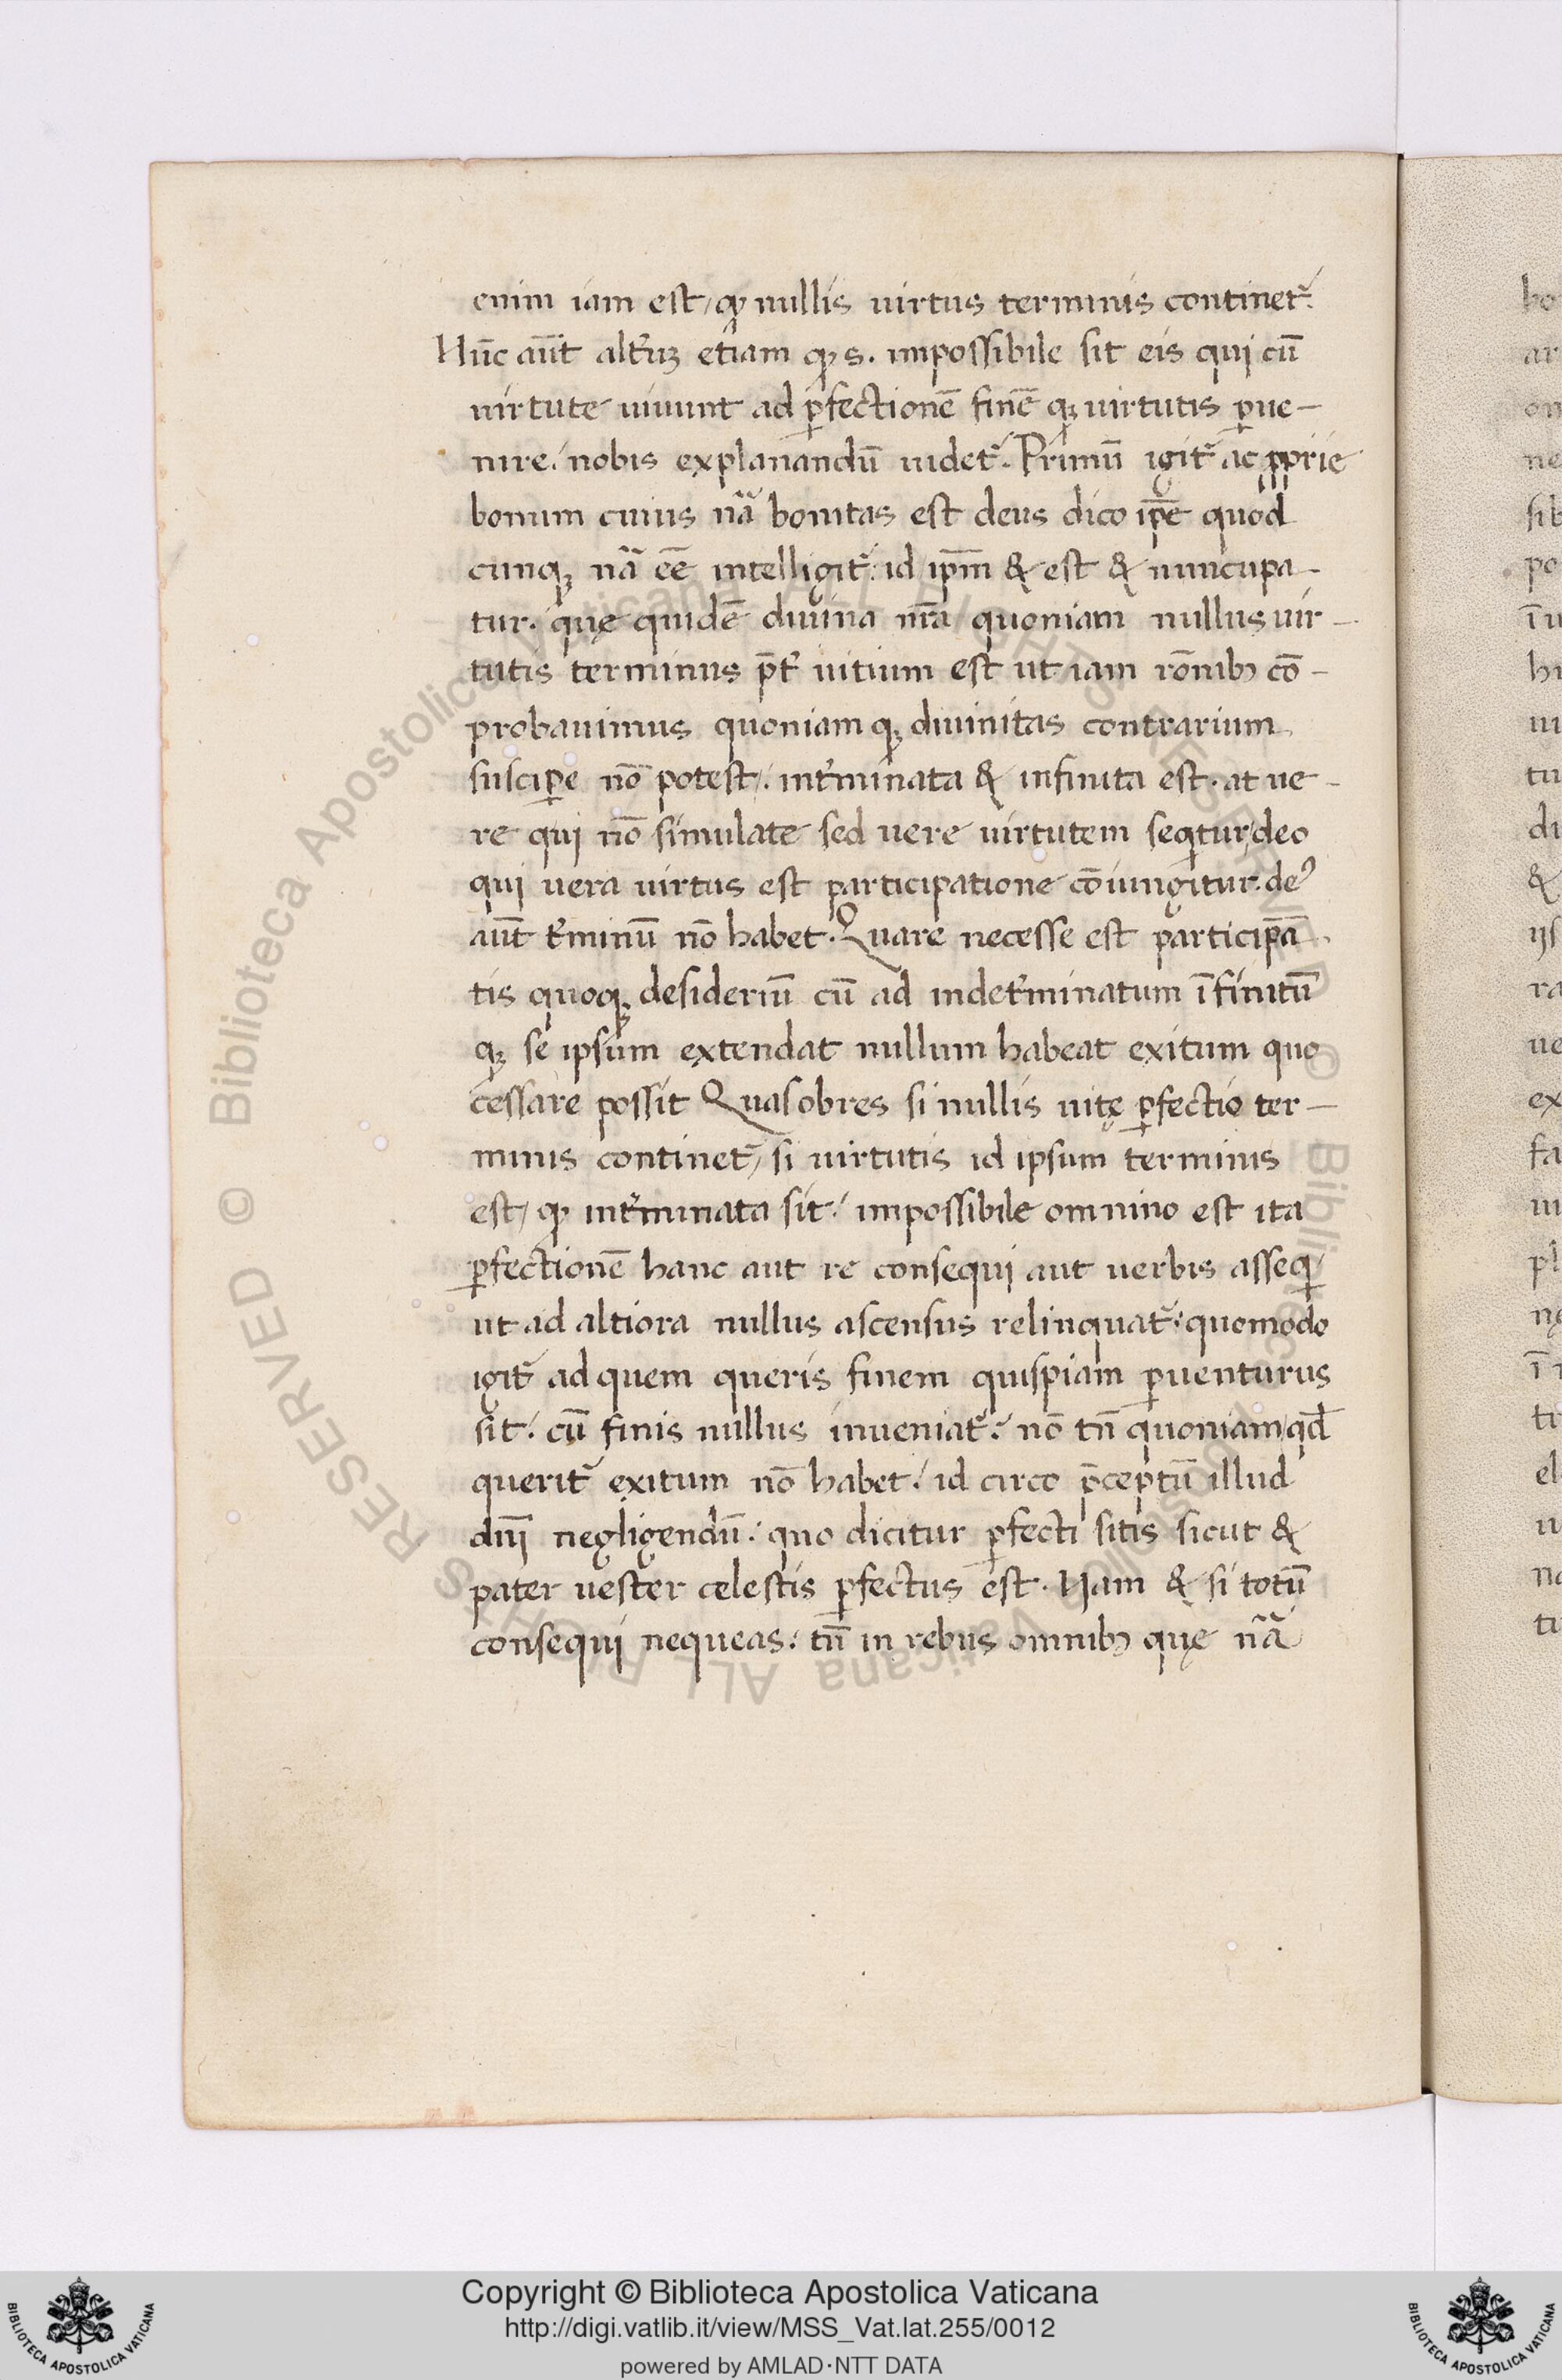 enim iam est, qꝫ nullis uirtus terminis continet᷑.
Nūc aūt alt᷑uꝫ etiam qꝫ s. impossibile sit eis qui cū
uirtute uiuunt ad ꝑfectionē finē qꝫ uirtutis ꝑue-
nire. nobis explanandū uidet᷑. Primū igit᷑ ac ꝓprie
bonum cuius nā bonitas est deus dico ip̄e quod
cunqꝫ nā eē intelligit᷑. id ip̄m & est & nuncupa-
tur. quę quidē diuina nr̄a quoniam nullus uir-
tutis terminus p̄t᷑ uitium est ut iam rōnibꝫ cō-
probauimus quoniam qꝫ diuinitas contrarium
susciꝑe nō potest. int᷑minata & infinita est. at ue-
re qui nō simulate sed uere uirtutem seqtur, deo
qui uera uirtus est participatione cōiungitur. de⁹
aūt t᷑minū nō habet. Quare necesse est particip̄a
tis quoqꝫ desideriū cū ad indet᷑minatum īfinitū
qꝫ se ipsum extendat nullum habeat exitum quo
cessare possit Quasobres si nullis uitę ꝑfectio ter-
minis continet᷑, si uirtutis id ipsum terminus
est, qꝫ int᷑minata sit. impossibile omnino est ita
ꝑfectionē hanc aut re consequi aut uerbis asseq
ut ad altiora nullus ascensus relinquat᷑. quomodo
igit᷑ ad quem queris finem quispiam ꝑuenturus
sit. cū finis nullus inueniat᷑. nō tn̄ quoniam, qd̄
querit᷑ exitum nō habet. id circo p̄ceptū illud
dn̄i negligendū. quo dicitur ꝑfecti sitis sicut &
pater uester celestis ꝑfectus est. Nam & si totū
consequi nequeas. tn̄ in rebus omnibꝫ quę nā
Copyright © Biblioteca Apostolica Vaticana
http://digi.vatlib.it/view/MSS_Vat.lat.255/0012
powered by AMLAD·NTT DATA